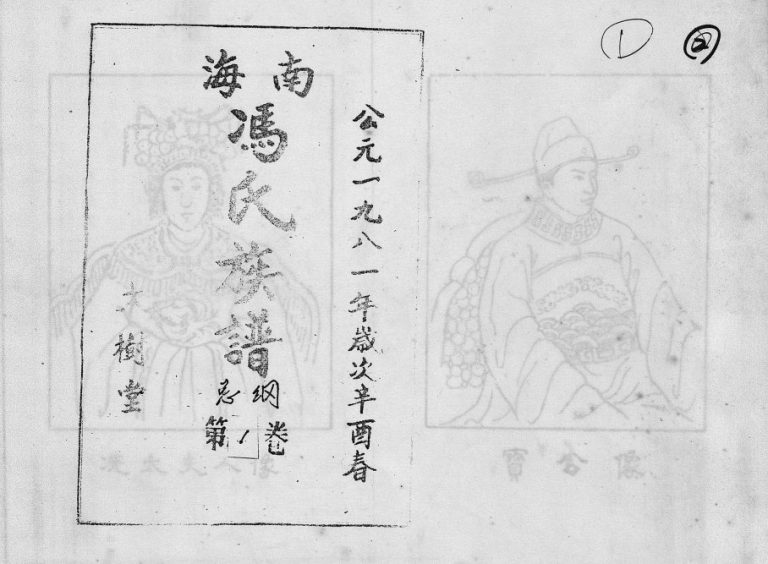 ① ②
公元一九八一年歲次辛酉春
海南
馮氏族譜
总纲
第1卷
大樹堂
冼太夫人像
寶公像